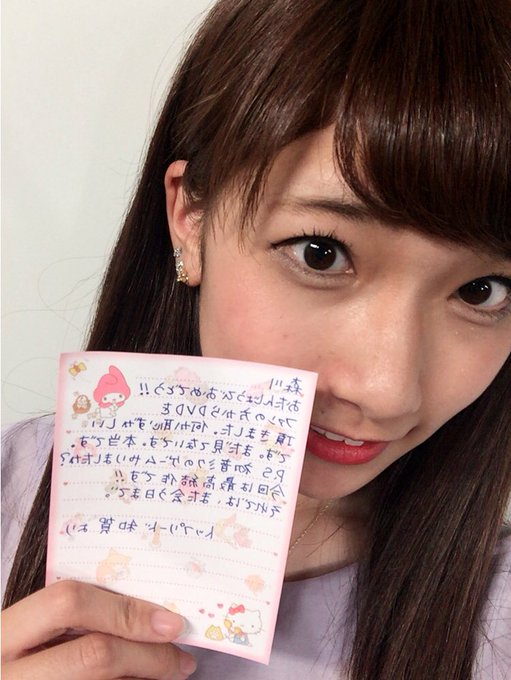 森川
おたんじょうびおめでとう!!
ファンの方からDVDを
頂きました。何か恥ずかしい
です。まだ見てないです。本当です。
P.S 初音ミクのゲームやりましたか?
今回は最高傑作です!!
それでは、また会う日まで。
トップリード 和賀より